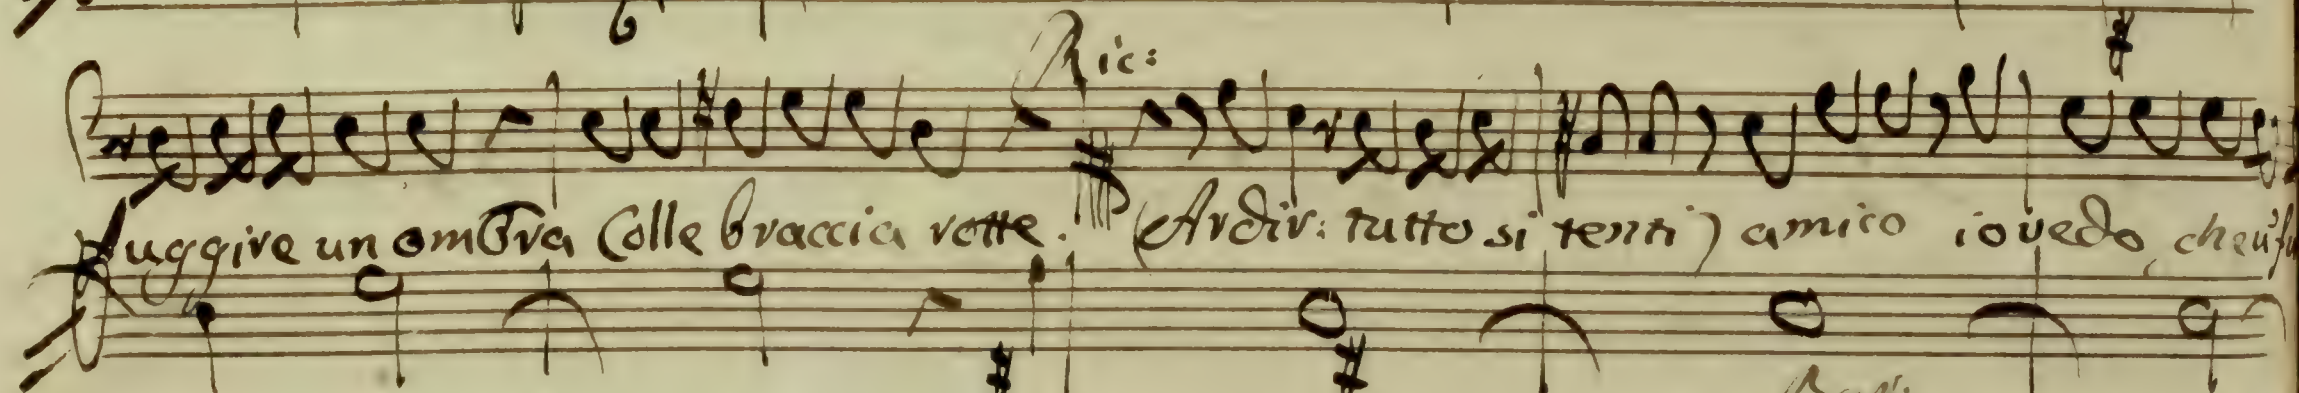 Ric:
fuggire un ombra Colle braccia rotte. (Ardir: tutto si tenti) amico io vedo, che